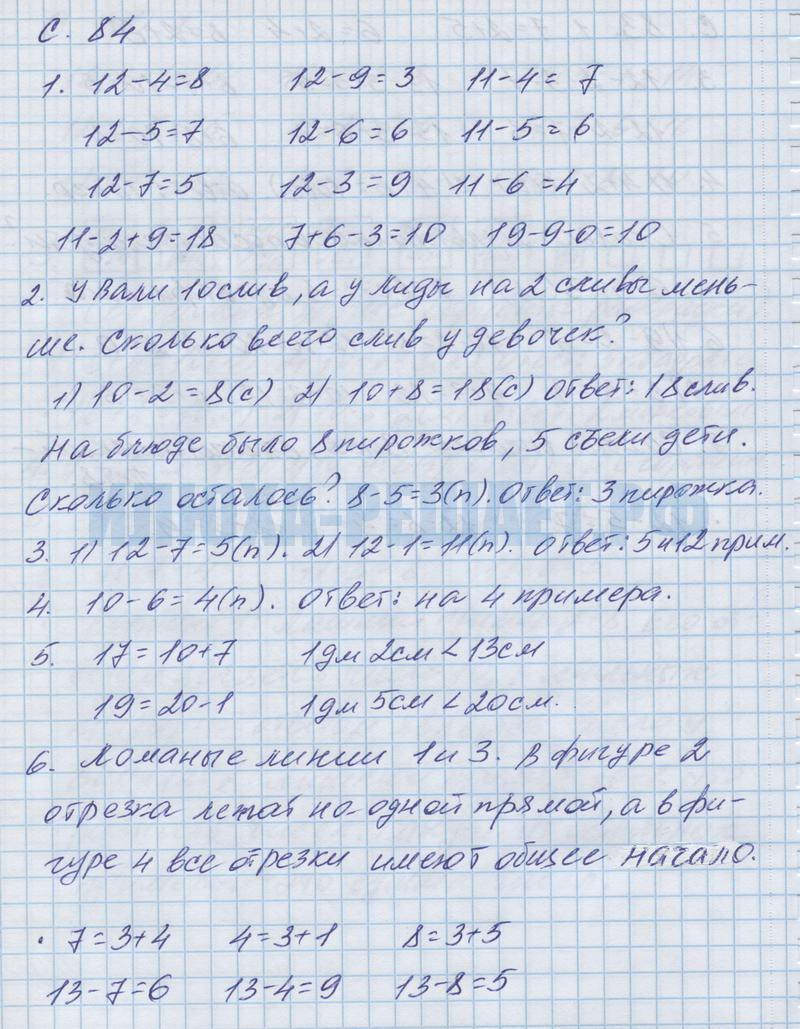 с. 84
1. 12-4=8 12-9=3 11-4=7
12-5=7 12-6=6 11-5=6
12-7=5 12-3=9 11-6=4
11-2+9=18 7+6-3=10 19-9-0=10
2. У Вали 10 слив, а у Лиды на 2 сливы мень-
ше. Сколько всего слив у девочек?
1) 10-2=8(с) 2) 10+8=18(с) Ответ: 18 слив.
На блюде было 8 пирожков, 5 съели дети.
Сколько осталось? 8-5=3(п). Ответ: 3 пирожка.
3. 1) 12-7=5(п). 2) 12-1=11(п). Ответ: 5 и 12 прим.
4. 10-6=4(п). Ответ: на 4 примера.
5. 17=10+7 1дм 2см < 13см
19=20-1 1дм 5см < 20см.
6. Ломаные линии 1 и 3. В фигуре 2
отрезка лежат на одной прямой, а в фи-
гуре 4 все отрезки имеют общее начало.
. 7=3+4 4=3+1 8=3+5
13-7=6 13-4=9 13-8=5